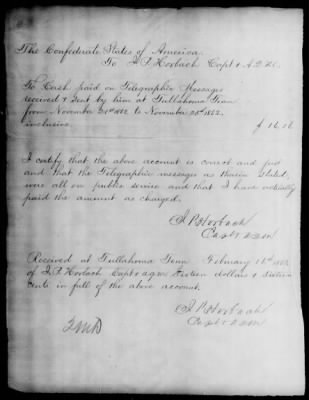 The Confederate States of America
To J. P. Horbach Capt & A.Q.M.
To Cash paid on Telegraphic Messages
received & Sent by him at Tullahoma Tenn
from November 21st 1862 to November 28th 1862
inclusive. $ 16.16
I certify that the above account is correct and just
and that the Telegraphic messages as therein stated,
were all on public service and that I have actually
paid the amount as charged.
J. P. Horbach
Capt & AQM
Received at Tullahoma Tenn February
of J. P. Horbach Capt & AQM Sixteen dollars & Sixteen
cents in full of the above account.
J. P. Horbach
Capt & AQM